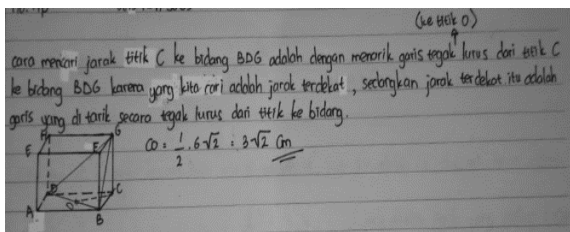 (ke titik O)
cara mencari jarak titik C ke bidang BDG adalah dengan menarik garis tegak lurus dari titik C
ke bidang BDG karena yang kita cari adalah jarak terdekat, sedangkan jarak terdekat itu adalah
garis yang di tarik secara tegak lurus dari titik ke bidang.
CO = 1/2 . 6√2 = 3√2 Cm
H G
E F
D C
O
A B